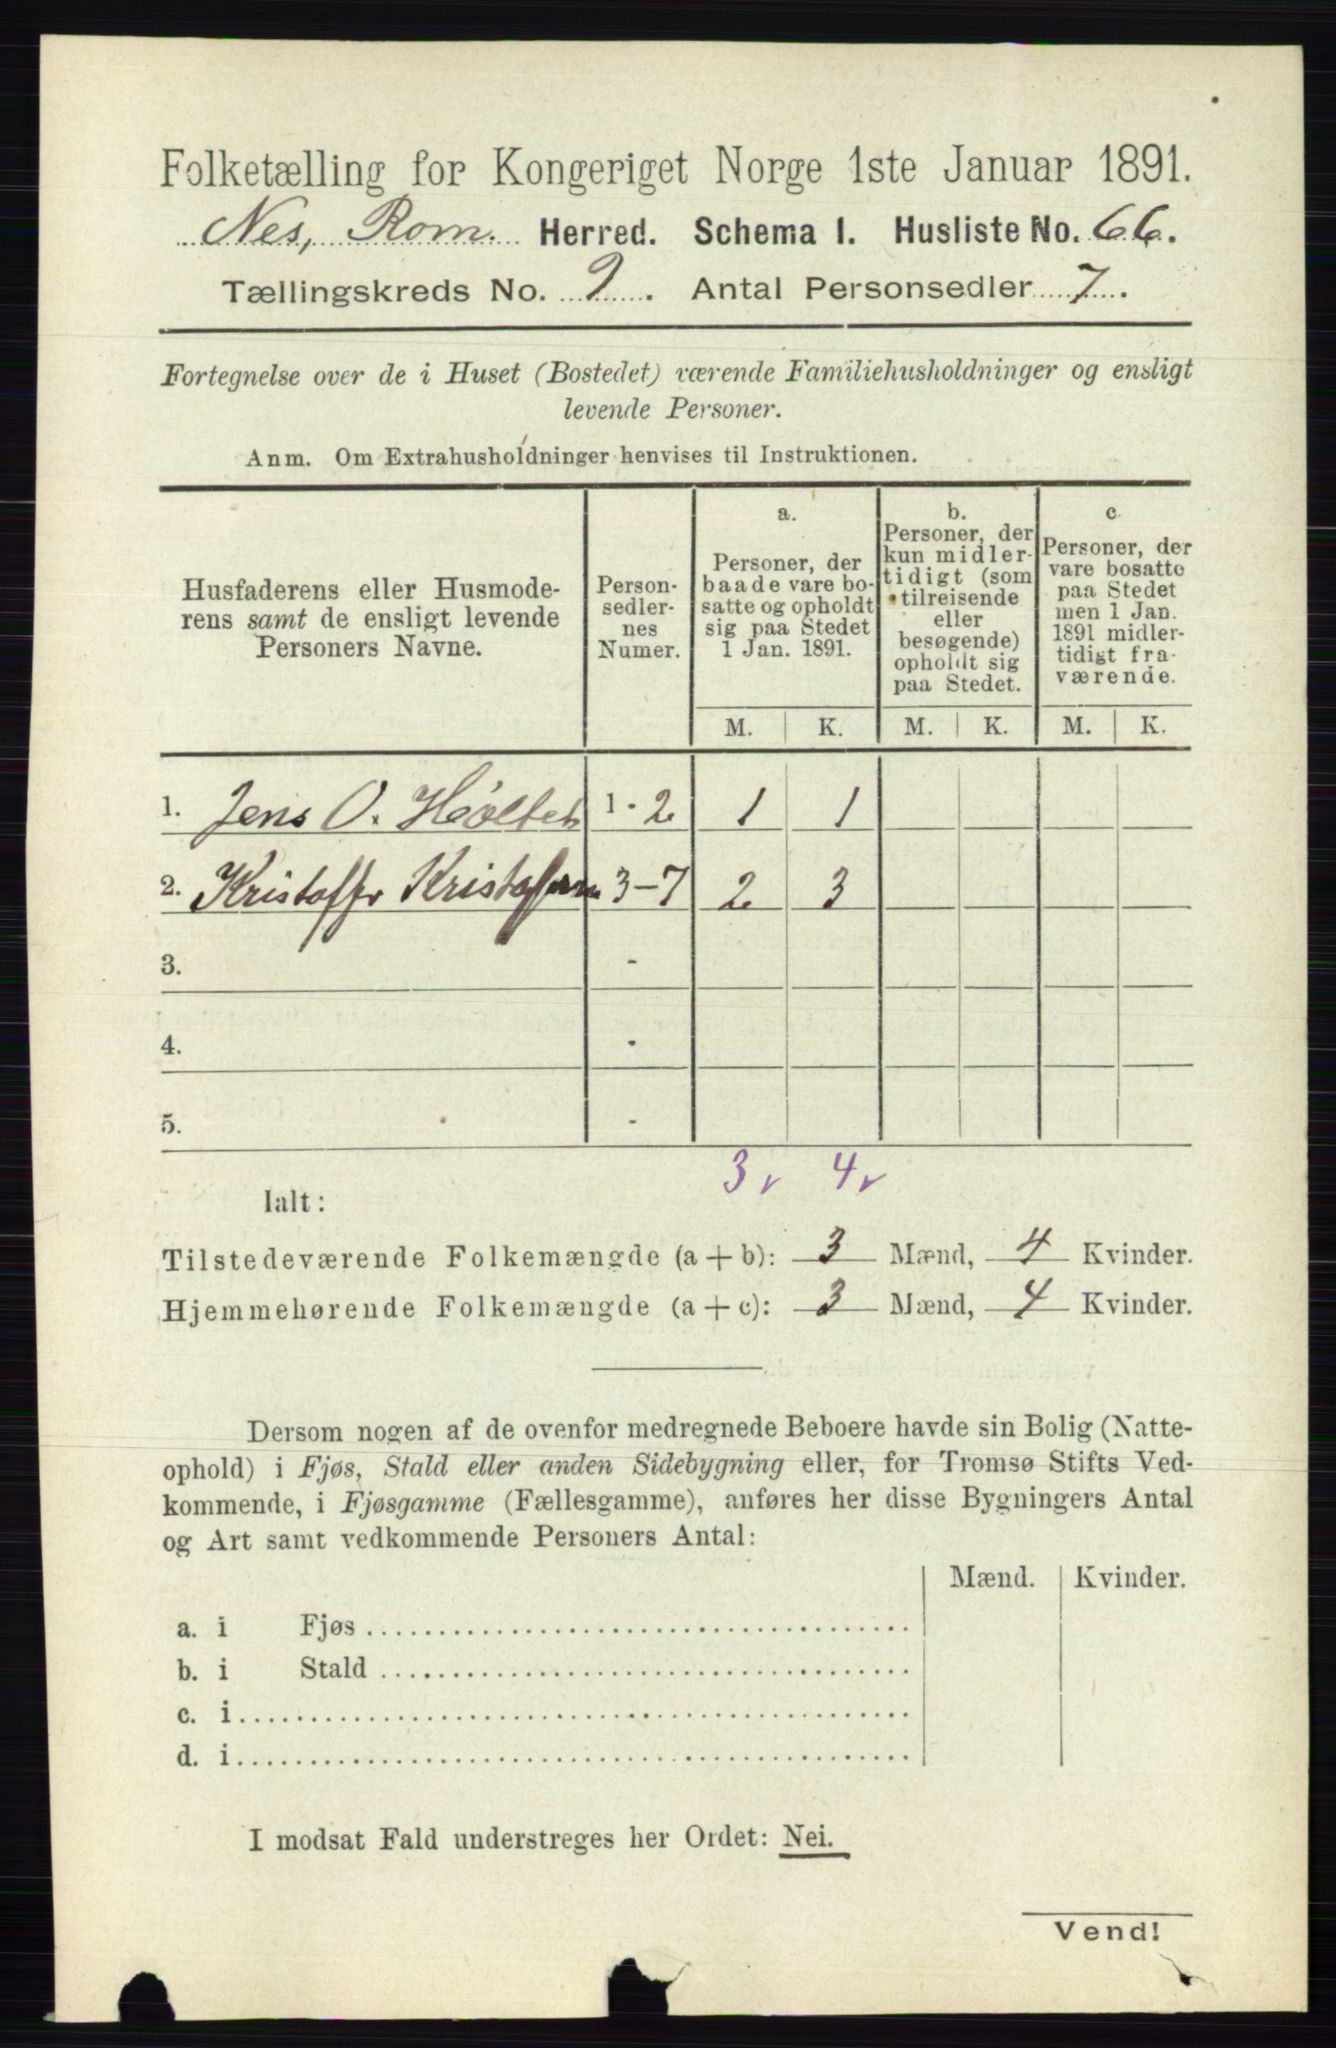 Folketælling for Kongeriget Norge 1ste Januar 1891.
Nes, Rom. Herred. Schema I. Husliste No. 66.
Tællingskreds No. 9. Antal Personsedler 7.
Fortegnelse over de i Huset (Bostedet) værende Familiehusholdninger og ensligt
levende Personer.
Anm. Om Extrahusholdninger henvises til Instruktionen.
Husfaderens eller Husmode-
rens samt de ensligt levende
Personers Navne.
Person-
sedler-
nes
Numer.
a.
Personer, der
baade vare bo-
satte og opholdt
sig paa Stedet
1 Jan. 1891.
b.
Personer, der
kun midler-
tidigt (som
tilreisende
eller
besøgende)
opholdt sig
paa Stedet.
c.
Personer, der
vare bosatte
paa Stedet
men 1 Jan.
1891 midler-
tidigt fra-
værende.
M. K. M. K. M. K.
1. Jens O. Høltet 1 - 2 1 1
2. Kristoffer Kristoffersen 3 - 7 2 3
3. -
4. -
5. -
3 v 4 v
Ialt:
Tilstedeværende Folkemængde (a + b): 3 Mænd, 4 Kvinder.
Hjemmehørende Folkemængde (a + c): 3 Mænd, 4 Kvinder.
Dersom nogen af de ovenfor medregnede Beboere havde sin Bolig (Natte-
ophold) i Fjøs, Stald eller anden Sidebygning eller, for Tromsø Stifts Ved-
kommende, i Fjøsgamme (Fællesgamme), anføres her disse Bygningers Antal
og Art samt vedkommende Personers Antal:
Mænd. Kvinder.
a. i Fjøs
b. i Stald
c. i
d. i
I modsat Fald understreges her Ordet: Nei.
Vend!